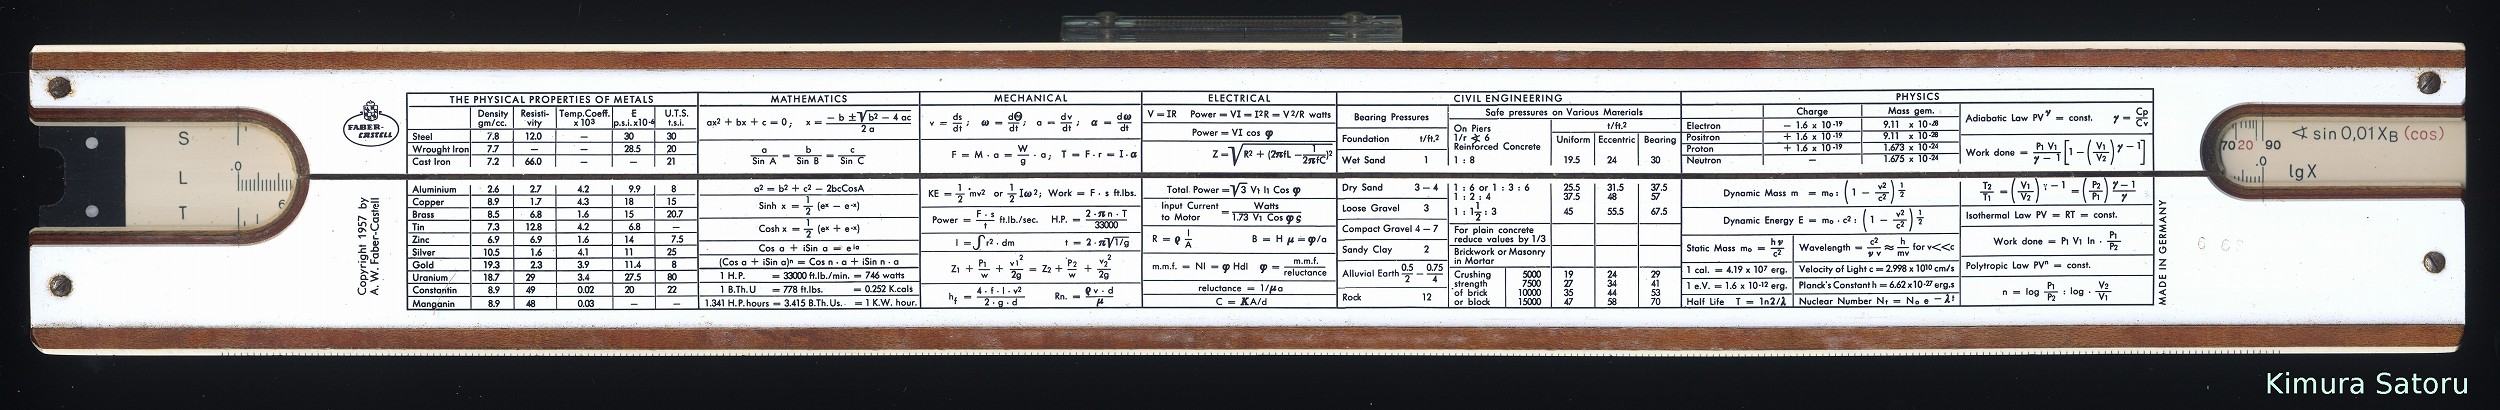 S
L
T
.0
6
FABER-CASTELL
Copyright 1957 by
A. W. Faber-Castell
THE PHYSICAL PROPERTIES OF METALS
Density gm/cc. Resisti-vity Temp.Coeff. x 10³ E p.s.i.x10⁻⁶ U.T.S. t.s.i.
Steel 7.8 12.0 — 30 30
Wrought Iron 7.7 — — 28.5 20
Cast Iron 7.2 66.0 — — 21
Aluminium 2.6 2.7 4.2 9.9 8
Copper 8.9 1.7 4.3 18 15
Brass 8.5 6.8 1.6 15 20.7
Tin 7.3 12.8 4.2 6.8 —
Zinc 6.9 6.9 1.6 14 7.5
Silver 10.5 1.6 4.1 11 25
Gold 19.3 2.3 3.9 11.4 8
Uranium 18.7 29 3.4 27.5 80
Constantin 8.9 49 0.02 20 22
Manganin 8.9 48 0.03 — —
MATHEMATICS
ax² + bx + c = 0; x = (− b ± √b² − 4 ac) / 2 a
a / Sin A = b / Sin B = c / Sin C
a² = b² + c² − 2bcCosA
Sinh x = 1/2 (eˣ − e⁻ˣ)
Cosh x = 1/2 (eˣ + e⁻ˣ)
Cos a + iSin a = eⁱᵃ
(Cos a + iSin a)ⁿ = Cos n · a + iSin n · a
1 H.P. = 33000 ft.lb./min. = 746 watts
1 B.Th.U = 778 ft.lbs. = 0.252 K.cals
1.341 H.P. hours = 3.415 B.Th.Us. = 1 K.W. hour.
MECHANICAL
v = ds/dt; ω = dΘ/dt; a = dv/dt; α = dω/dt
F = M · a = W/g · a; T = F · r = I · α
KE = 1/2 mv² or 1/2 Iω²; Work = F · s ft.lbs.
Power = F · s / t ft.lb./sec. H.P. = 2 · πn · T / 33000
I = ∫r² · dm t = 2 · π√l/g
Z₁ + P₁/w + v₁²/2g = Z₂ + P₂/w + v₂²/2g
h_f = 4 · f · l · v² / 2 · g · d Rn. = ϱ v · d / μ
ELECTRICAL
V = IR Power = VI = I²R = V²/R watts
Power = VI cos φ
Z = √R² + (2πfL − 1/2πfC)²
Total Power = √3 V₁ I₁ Cos φ
Input Current to Motor = Watts / 1.73 V₁ Cos φ ς
R = ϱ l/A B = H μ = φ/a
m.m.f. = NI = φ Hdl φ = m.m.f. / reluctance
reluctance = l/μa
C = KA/d
CIVIL ENGINEERING
Bearing Pressures
Foundation t/ft.²
Wet Sand 1
Dry Sand 3 — 4
Loose Gravel 3
Compact Gravel 4 — 7
Sandy Clay 2
Alluvial Earth 0.5/2 — 0.75/4
Rock 12
Safe pressures on Various Materials
On Piers 1/r ≮ 6 Reinforced Concrete
t/ft.²
Uniform Eccentric Bearing
1 : 8 19.5 24 30
1 : 6 or 1 : 3 : 6 25.5 31.5 37.5
1 : 2 : 4 37.5 48 57
1 : 1½ : 3 45 55.5 67.5
For plain concrete reduce values by 1/3
Brickwork or Masonry in Mortar
Crushing 5000 19 24 29
strength 7500 27 34 41
of brick 10000 35 44 53
or block 15000 47 58 70
PHYSICS
Charge Mass gem.
Electron − 1.6 x 10⁻¹⁹ 9.11 x 10⁻²⁸
Positron + 1.6 x 10⁻¹⁹ 9.11 x 10⁻²⁸
Proton + 1.6 x 10⁻¹⁹ 1.673 x 10⁻²⁴
Neutron — 1.675 x 10⁻²⁴
Dynamic Mass m = m₀ : (1 − v²/c²)½
Dynamic Energy E = m₀ · c² : (1 − v²/c²)½
Static Mass m₀ = hν/c² Wavelength = c²/νv ≈ h/mv for v<<c
1 cal. = 4.19 x 10⁷ erg. Velocity of Light c = 2.998 x 10¹⁰ cm/s
1 e.V. = 1.6 x 10⁻¹² erg. Planck's Constant h = 6.62 x 10⁻²⁷ erg.s
Half Life T = ln2/λ Nuclear Number Nt = No e −λt
Adiabatic Law PVᵞ = const. γ = Cp/Cv
Work done = P₁ V₁ / γ − 1 [1 − (V₁/V₂)ᵞ⁻¹]
T₂/T₁ = (V₁/V₂)ᵞ⁻¹ = (P₂/P₁)ᵞ⁻¹/ᵞ
Isothermal Law PV = RT = const.
Work done = P₁ V₁ ln · P₁/P₂
Polytropic Law PVⁿ = const.
n = log P₁/P₂ : log · V₂/V₁
MADE IN GERMANY
70 20 90
.0
∢ sin 0,01XB (cos)
lgX
Kimura Satoru